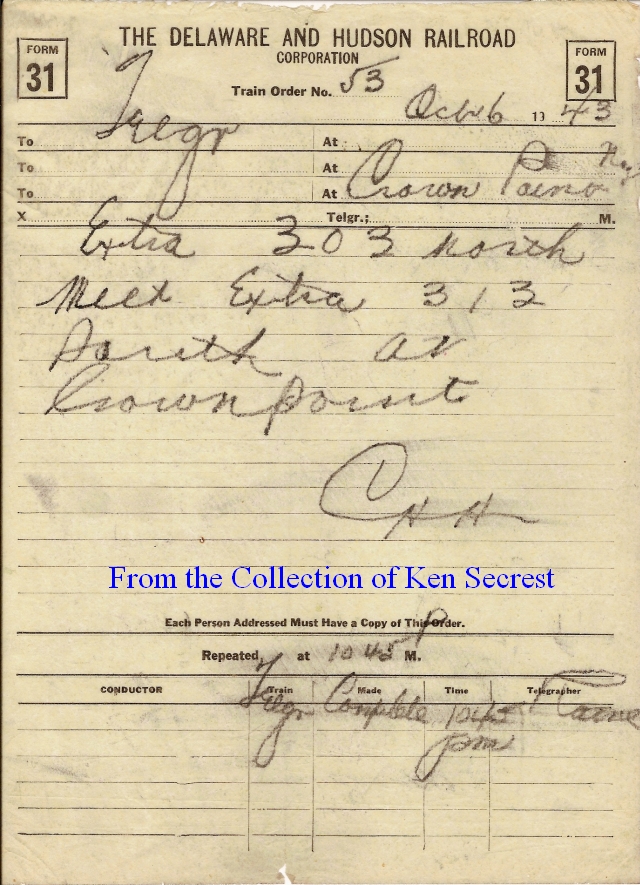 THE DELAWARE AND HUDSON RAILROAD
CORPORATION
FORM
31
FORM
31
Train Order No. 53
Oct 6 1943
To Telegr At
To At
To At Crown Point
X Telgr.; M.
Extra 303 North
Meet Extra 313
South at
Crown point
CHH
From the Collection of Ken Secrest
Each Person Addressed Must Have a Copy of This Order.
Repeated at 10 45 P M.
CONDUCTOR Train Made Time Telegrapher
Telgr Complete 1045
pm